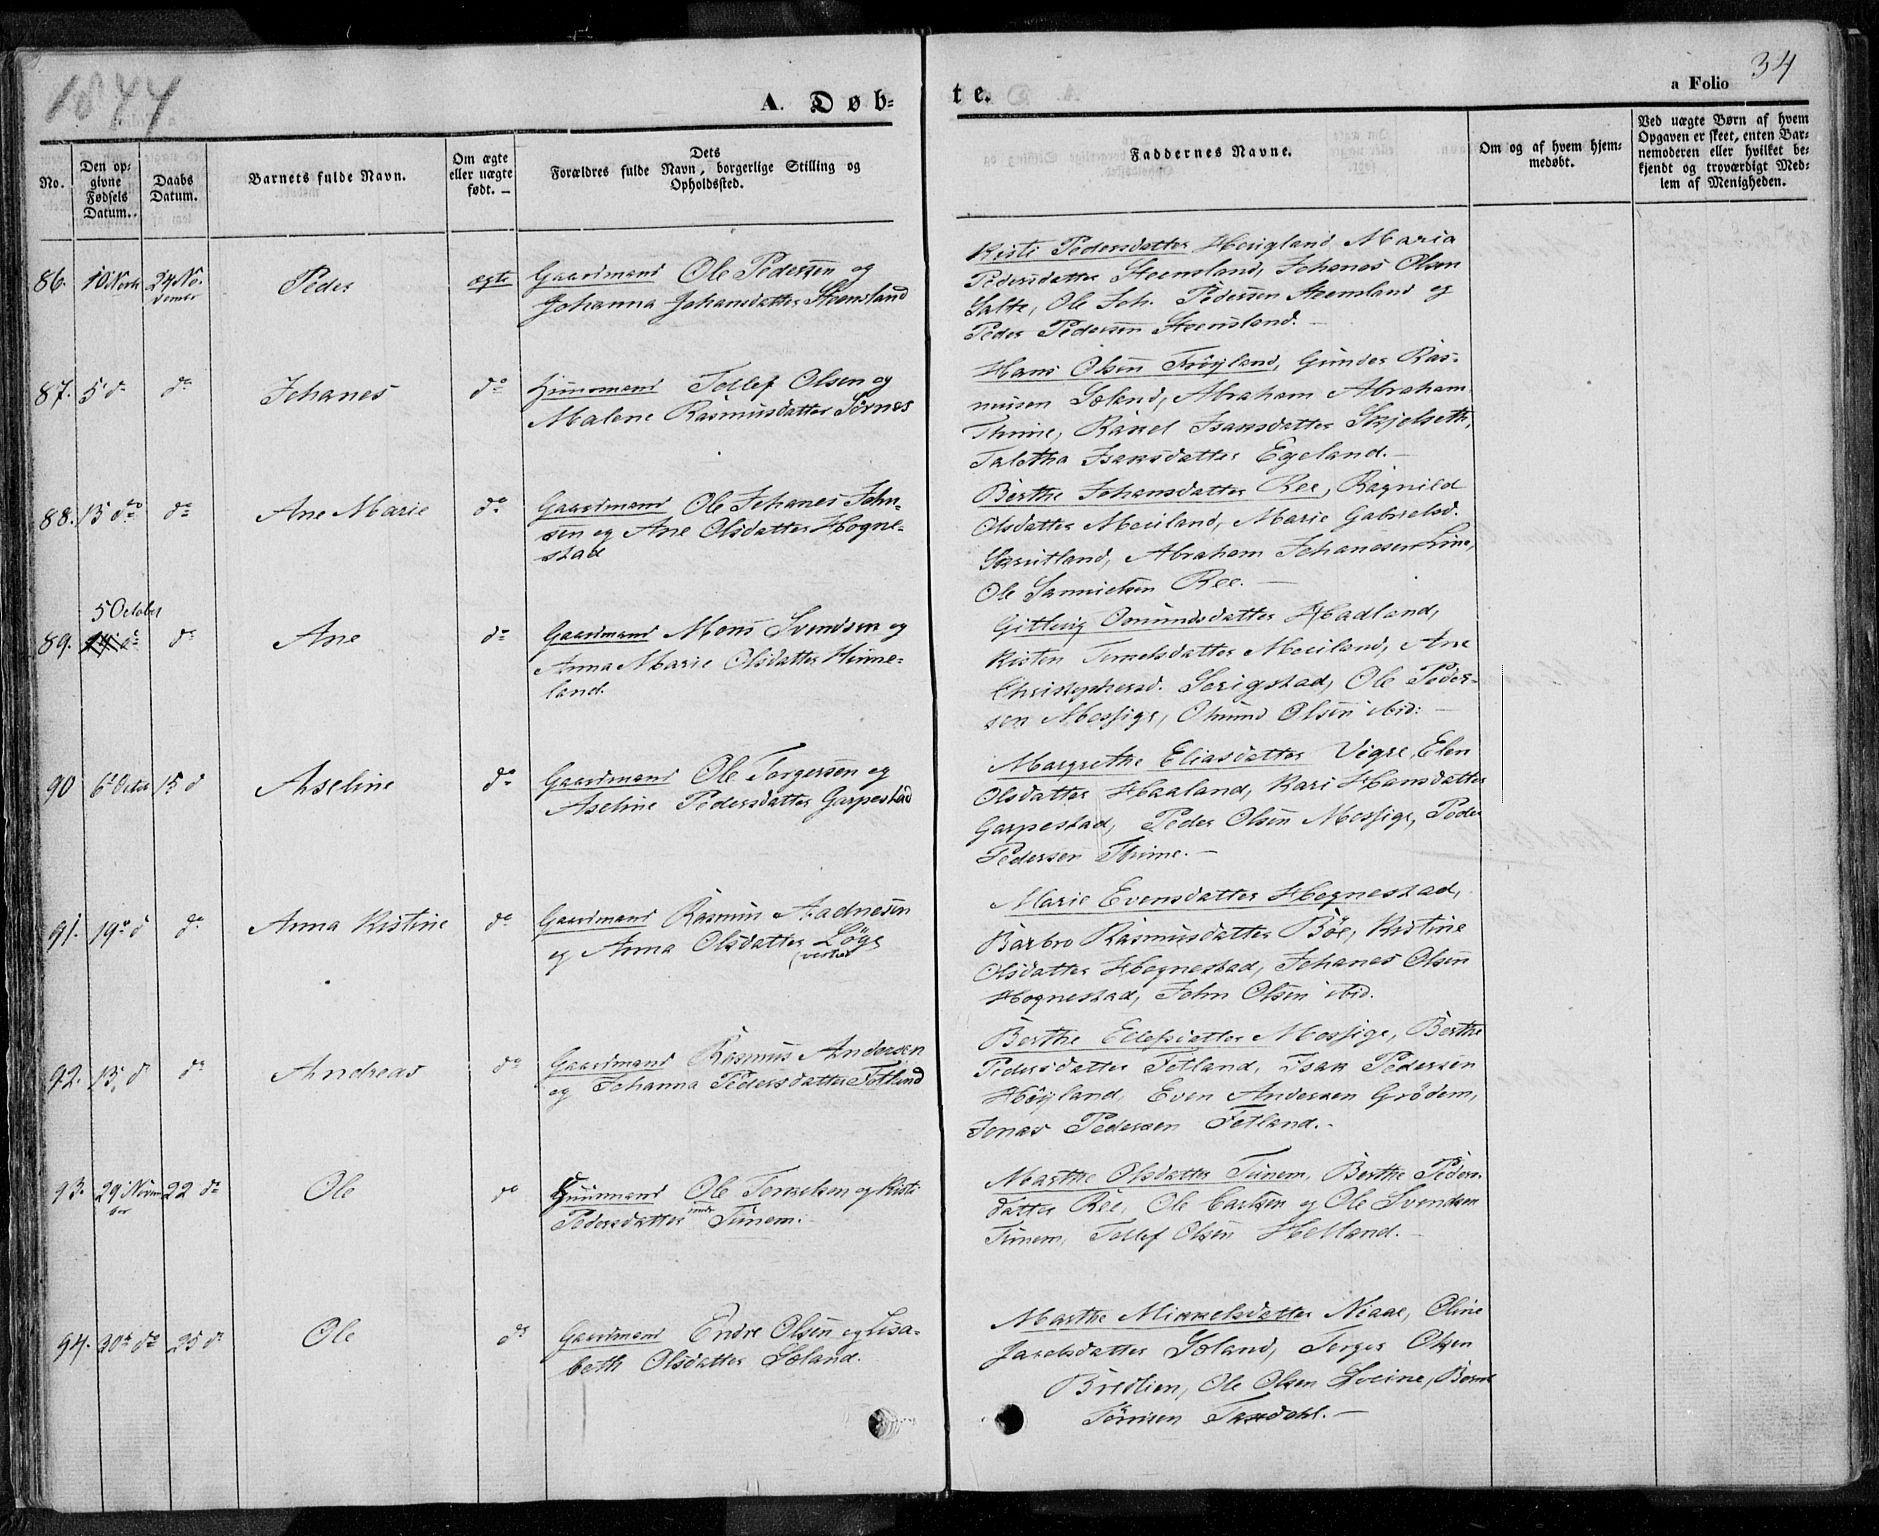 1844
34
A. Døb-
te.
a Folio
No.
Den op-
givne
Fødsels
Datum.
Daabs
Datum.
Barnets fulde Navn.
Om ægte
eller uægte
født. —
Dets
Forældres fulde Navn, borgerlige Stilling og
Opholdssted.
Faddernes Navne.
Om og af hvem hjem-
medøbt.
Ved uægte Børn af hvem
Opgaven er skeet, enten Bar-
nemoderen eller hvilket be-
kjendt og troværdigt Med-
lem af Menigheden.
86. 24 No-
vember
Peder
ægte
Gaardmand Ole Pedersen og
Johanna Johansdatter Steensland
Kristi Pedersdatter Haugland, Maria
Pedersdatter Steensland, Johanes Olsen
Salte, Ole Joh. Pedersen Steensland og
Peder Pedersen Steensland. —
87. 5 do do
Johanes
do
Huusmand Tollef Olsen og
Malene Rasmusdatter Sørnes
Hans Olsen Frøyland, Gunder Ras-
musen Soland, Abraham Abraham
Thime, Rakel Isaksdatter Skjelseth,
Taletha Isaksdatter Egeland. —
88. 13 do do
Ane Marie
do
Gaardmand Ole Johanes John-
sen og Ane Olsdatter Hogne-
stad
Berthe Johansdatter Ree, Ragnild
Olsdatter Moiland, Marie Gabrielsd.
Skrutland, Abraham Johanesen Line,
Ole Samuelsen Ree. —
5 October
89. do
Ane
do
Gaardmand Mons Svendsen og
Anna Marie Olsdatter Hinne-
land.
Gitlevig Omundsdatter Hadland,
Kisten Torkelsdatter Moiland, Ane
Christophersd. Serigstad, Ole Peder-
sen Mossige, Omund Olsen ibid: —
90 6 Octor 15 d
Aseline
do
Gaardmand Ole Torgersen og
Aseline Pedersdatter Garpestad
Margrethe Eliasdatter Vigre, Elen
Olsdatter Haaland, Kari Hansdatter
Garpestad, Peder Olsen Mossige, Peder
Pedersen Thime. —
91. 19 d do
Anna Kistine
do
Gaardmand Rasmus Aadnesen
og Anna Olsdatter Løge
Marie Evensdatter Hognestad,
Barbro Rasmusdatter Bøe, Kistine
Olsdatter Hognestad, Johanes Olsen
Hognestad, John Olsen ibid.
92. 13 d do
Andreas
do
Gaardmand Rasmus Andersen
og Johanna Pedersdatter Fotland
Berthe Ellefsdatter Mossige, Berthe
Pedersdatter Fotland, Isak Pedersen
Høyland, Even Andersen Grødem,
Jonas Pedersen Fotland. -
93. 29 Novem-
ber 22 do
Ole
do
Huusmand Ole Torkelsen og Kisti
Pedersdatter Tunem.
Marthe Olsdatter Tunem, Berthe Peders-
datter Ree, Ole Carlsen og Ole Svendsen
Tunem, Tollef Olsen Helland. —
94. 20 do 25 d
Ole
do
Gaardmand Endre Olsen og Lisa-
beth Olsdatter Soland.
Marthe Mikkelsdatter Niaae, Oline
Jakobsdatter Soland, Torger Olsen
Bredlien, Ole Olsen
Tønnesen Taxdahl. —